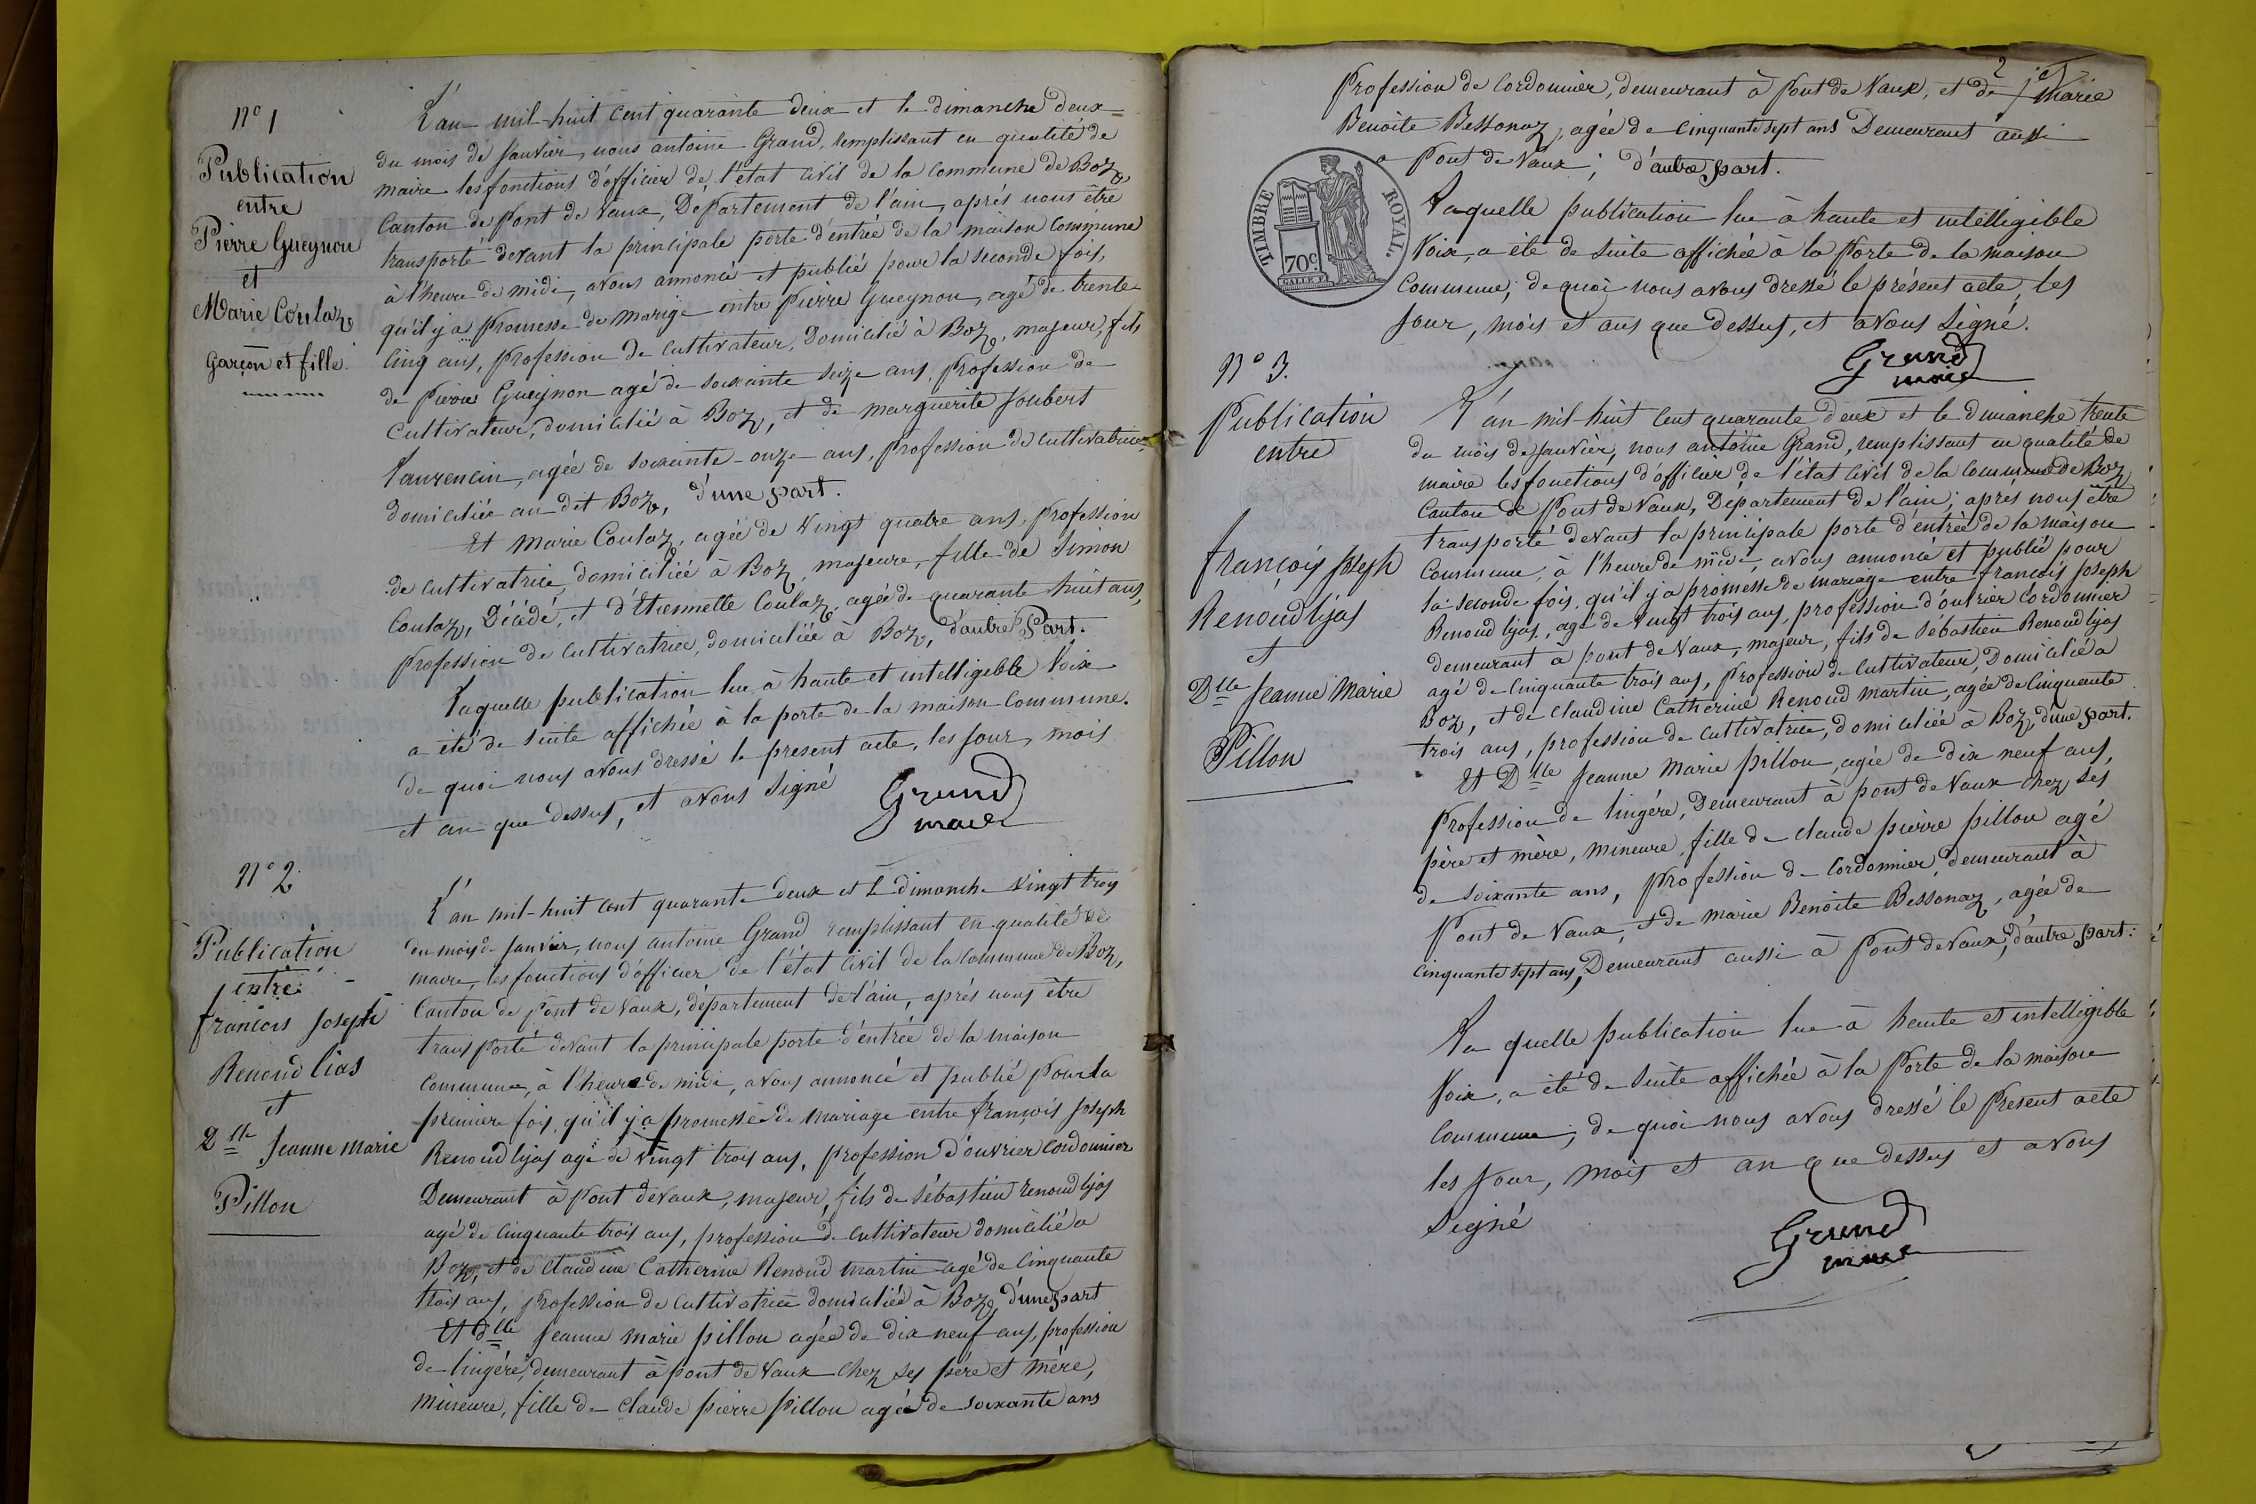 N° 1
Publication
entre
Pierre Gueynon
et
Marie Coulaz
garçon et fille.
L'an mil-huit cent quarante deux et le dimanche deux
du mois de Janvier, nous antoine Grand, remplissant en qualité de
maire les fonctions d'officier de l'état civil de la commune de Boz,
Canton de Pont de Vaux, Département de l'ain, aprés nous être
transporté devant la principale porte d'entrée de la maison commune
à l'heure de midi, avons annoncé et publié pour la seconde fois,
qu'il y a promesse de marige entre Pierre Gueynon, agé de trente
cinq ans, profession de cultivateur, Domicilié à Boz, majeur, fils
de Pierre Gueynon agé de soixante seize ans, profession de
cultivateur, domicilié à Boz, et de marguerite Joubert
Laurencin, agée de soixante-onze ans, profession de cultivatrice,
domiciliée au dit Boz, d'une part.
Et Marie Coulaz, agée de vingt quatre ans, profession
de cultivatrice, domiciliée à Boz, majeure, fille de Simon
Coulaz, Décédé, et d'Etiennette Coulaz, agée de quarante huit ans,
profession de cultivatrice, domiciliée à Boz, d'autre Part.
Laquelle publication lue à haute et intelligible Voix
a été de suite affichée à la porte de la maison commune.
de quoi nous avons dressé le present acte, les jour, mois
et an que dessus, et avons Signé
Grand
maire
N° 2
Publication
entre
francois Joseph
Renoud lias
et
Dlle Jeanne Marie
Pillon
L'an mil-huit cent quarante deux et le dimanche vingt trois
du mois de Janvier, nous antoine Grand remplissant en qualité de
maire, les fonctions d'officier de l'état civil de la commune de Boz,
Canton de Pont de Vaux, département de l'ain, aprés nous être
transporté devant la principale porte d'entrée de la maison
commune, à l'heure de midi, avons annoncé et publié pour la
premiere fois, qu'il y a promesse de mariage entre françois Joseph
Renoud lyas agé de vingt trois ans, profession d'ouvrier cordonnier
Demeurant à pont de vaux, majeur, fils de Sébastien renoud lyas
agé de cinquante trois ans, profession de cultivateur domicilié a
Boz, et de Claudine Catherine Renoud martin agé de cinquante
trois ans, profession de cultivatrice domiciliée à Boz, d'une part
Et Dlle Jeanne marie pillon agée de dix neuf ans, profession
de lingére, demeurant à pont de Vaux chez ses pére et mère,
mineure, fille de Claude Pierre Pillon agé de soixante ans
2
Profession de cordonnier, demeurant à Pont de Vaux, et de marie
Benoite Bessonaz, agée de cinquante sept ans Demeurant aussi
a Pont de Vaux; d'autre part.
TIMBRE ROYAL.
70c.
Laquelle publication lue à haute et intelligible
Voix, a été de suite affichée à la Porte de la maison
commune; de quoi nous avons dressé le présent acte, les
Jour, mois et ans que dessus, et avons Signé.
Grand
maire
N° 3.
Publication
entre
françois Joseph
Renoud lyas
et
Dlle Jeanne Marie
Pillon
L'an mil-huit cent quarante deux et le dimanche trente
du mois de Janvier, nous antoine Grand, remplissant en qualité de
maire les fonctions d'officier de l'état civil de la commune de Boz
Canton de Pont de Vaux, Département de l'ain; aprés nous être
transporté devant la principale porte d'entrée de la maison
commune, à l'heure de midi, avons annoncé et publié pour
la seconde fois, qu'il y a promesse de mariage entre françois Joseph
Renoud lyas, agé de vingt trois ans, profession d'ouvrier cordonnier
demeurant à pont de Vaux, majeur, fils de Sébastien Renoud lyas
agé de cinquante trois ans, profession de cultivateur, Domicilié a
Boz, et de Claudine Catherine Renoud martin, agée de cinquante
trois ans, profession de cultivatrice, domiciliée à Boz, d'une part.
Et Dlle Jeanne Marie pillon, agée de dix neuf ans,
profession de lingére, Demeurant à pont de Vaux chez ses
père et mère, mineure, fille de claude pierre pillon agé
de soixante ans, profession de cordonnier, demeurant à
Pont de Vaux, et de marie Benoite Bessonaz, agée de
cinquante sept ans, Demeurant aussi à Pont de Vaux, d'autre part.
La quelle publication lue à haute et intelligible
Voix, a été de suite affichée à la Porte de la maison
commune; de quoi nous avons dressé le Present acte
les Jour, mois et an que dessus et avons
Signé
Grand
maire